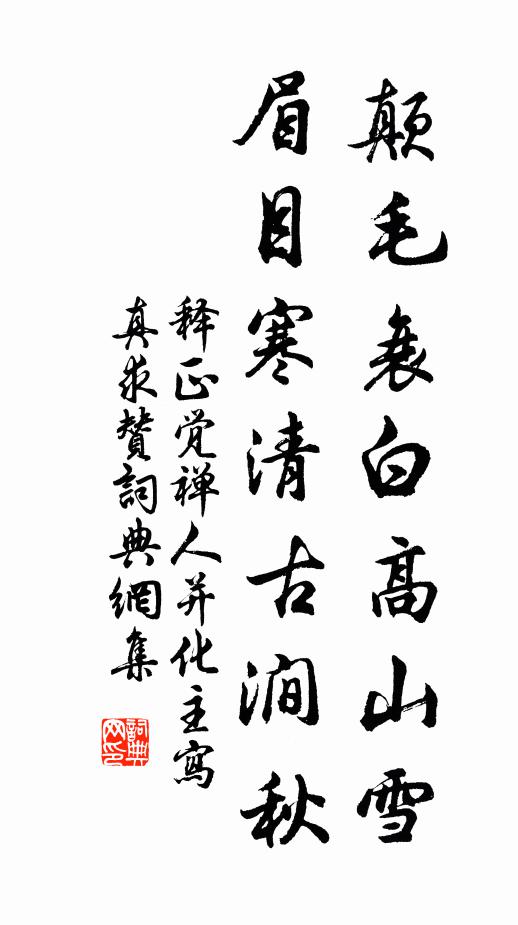 顛毛衰白高山雪
眉目寒清古澗秋
释正觉禅人并化主寫
真求贊詞典網集
詞典网印